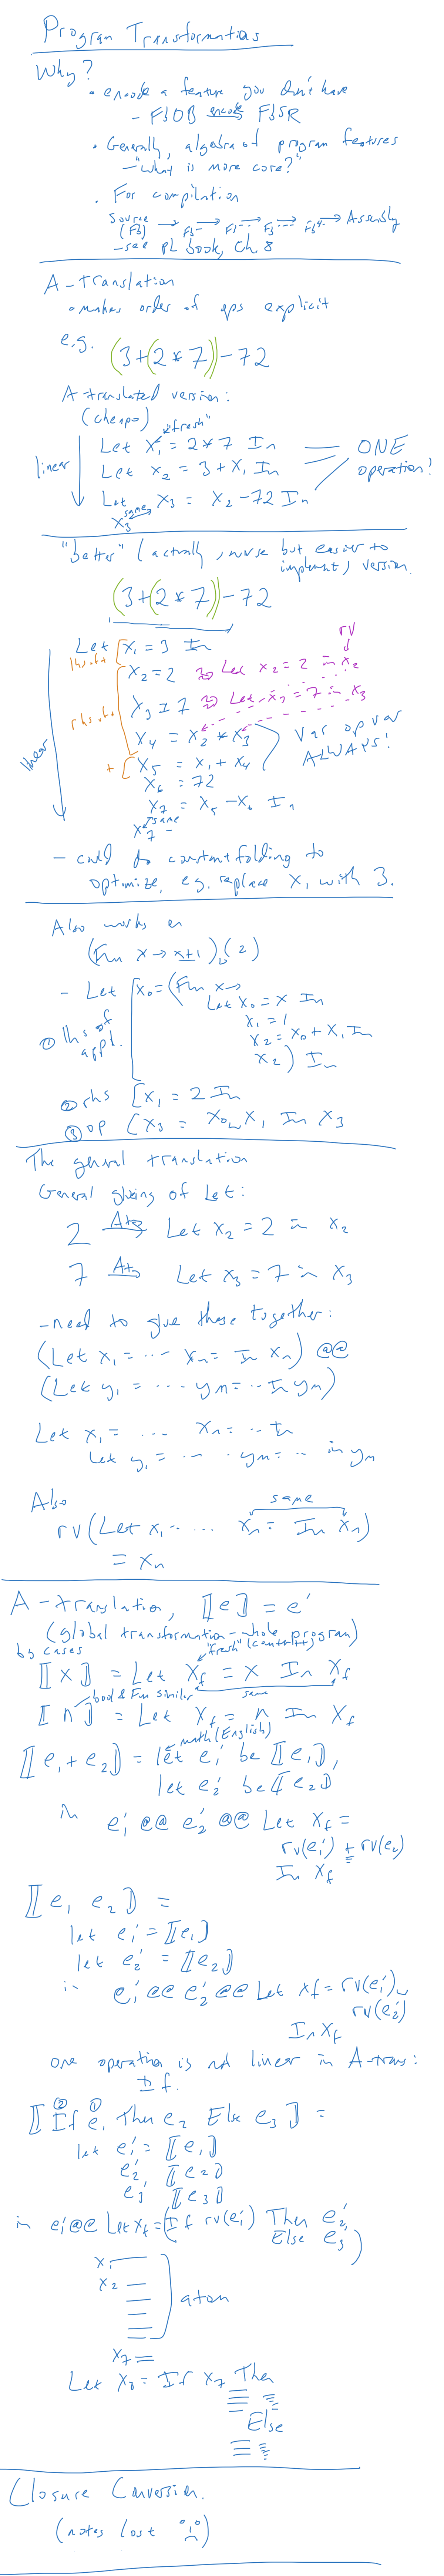 Program Transformations
Why?
• encode a feature you don't have
- FbOB encode FbSR
• Generally, algebra of program features
- "what is more core?"
• For compilation
Source (Fb) → Fb- → Fb-- → Fb--- → Fb4- → Assembly
- see PL book, Ch. 8
A-translation
• makes order of ops explicit
e.g. (3+(2*7))-72
A-translated version:
(cheapo) "fresh"
linear
Let x1 = 2*7 In
Let x2 = 3+x1 In
Let x3 = x2-72 In
x3 same
ONE operation!
"better" (actually, worse but easier to implement) version.
(3+(2*7))-72
linear
Let x1 = 3 In
lhs of +
rv
x2 = 2 Let x2 = 2 in x2
x3 = 7 Let x3 = 7 in x3
rhs of +
x4 = x2 * x3
+ x5 = x1 + x4
Var op var ALWAYS!
x6 = 72
x7 = x5 - x6 In
x7 same
- could do constant folding to
optimize, e.g. replace x1 with 3.
Also works on
(Fun x → x+1) (2)
- Let x0 = (Fun x →
Let x0 = x In
x1 = 1
x2 = x0 + x1 In
x2) In
① lhs of appl.
② rhs [x1 = 2 In
③ op [x3 = x0 x1 In x3
The general translation
General gluing of Let:
2 Atr Let x2 = 2 in x2
7 Atr Let x3 = 7 in x3
- need to glue these together:
(Let x1 = ... xn = In xn) @@
(Let y1 = ... ym = .. In ym)
Let x1 = ... xn = .. In
Let y1 = ... ym = .. in ym
Also
same
rv(Let x1 ... xn = In xn)
= xn
A-translation, ⟦e⟧ = e'
(global transformation - whole program)
by cases "fresh" (counter++)
⟦x⟧ = Let xf = x In xf
bool & Fun similar same
⟦n⟧ = Let xf = n In xf
math (English)
⟦e1 + e2⟧ = let e1' be ⟦e1⟧,
let e2' be ⟦e2⟧
in e1' @@ e2' @@ Let xf =
rv(e1') + rv(e2)
In xf
⟦e1 e2⟧ =
let e1' = ⟦e1⟧
let e2' = ⟦e2⟧
in e1' @@ e2' @@ Let xf = rv(e1')
rv(e2')
In xf
one operation is not linear in A-trans:
If.
② ①
⟦If e1 Then e2 Else e3⟧ =
let e1' = ⟦e1⟧
e2' ⟦e2⟧
e3' ⟦e3⟧
in e1' @@ Let xf = (If rv(e1') Then e2'
Else e3')
x1
x2
atom
x7 =
Let x8 = If x7 Then
Else
Closure Conversion.
(notes lost :()